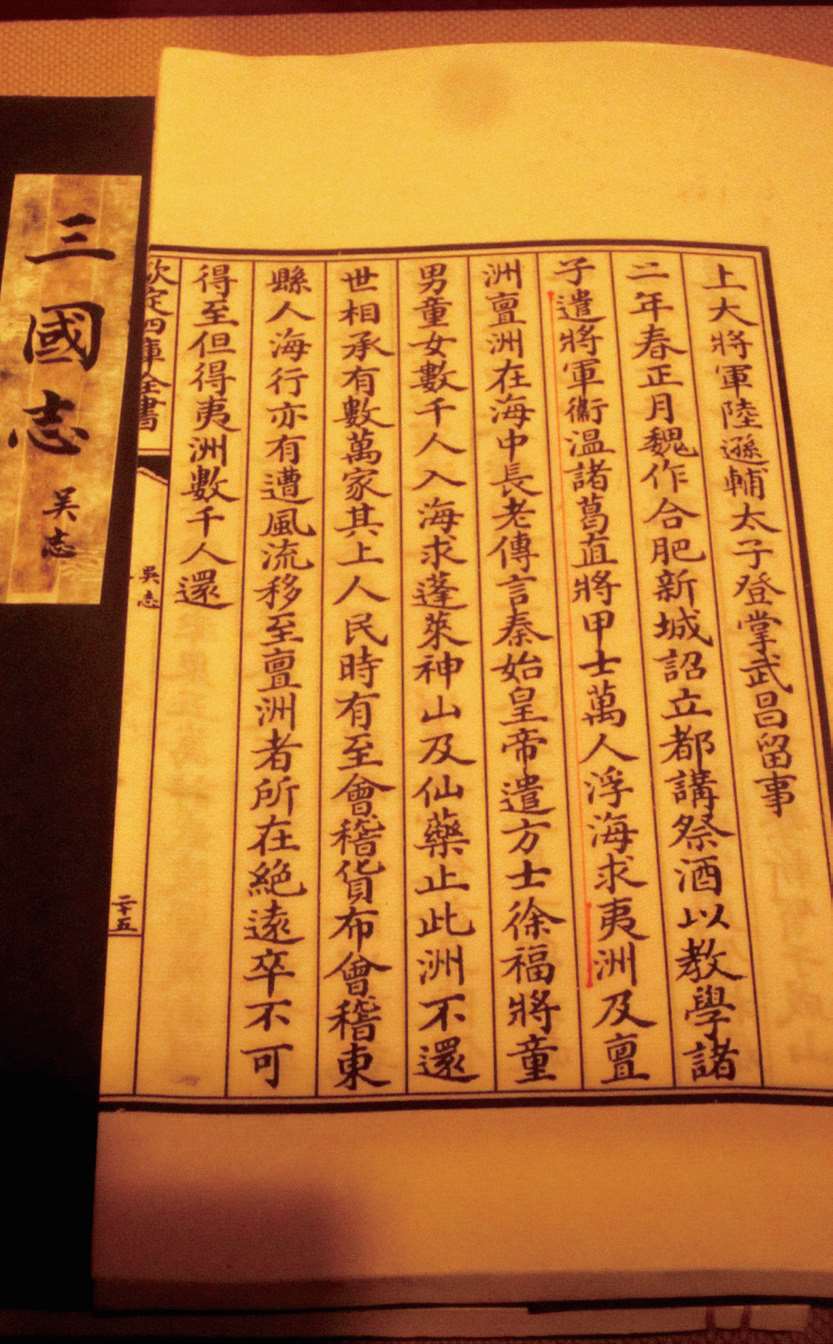 上大將軍陸遜輔太子登掌武昌留事
二年春正月魏作合肥新城詔立都講祭酒以教學諸
子遣將軍衞溫諸葛直將甲士萬人浮海求夷洲及亶
洲亶洲在海中長老傳言秦始皇帝遣方士徐福將童
男童女數千人入海求蓬萊神山及仙藥止此洲不還
世相承有數萬家其上人民時有至會稽貨布會稽東
縣人海行亦有遭風流移至亶洲者所在絕遠卒不可
得至但得夷洲數千人還
欽定四庫全書
吳志
二十五
三國志
吳志